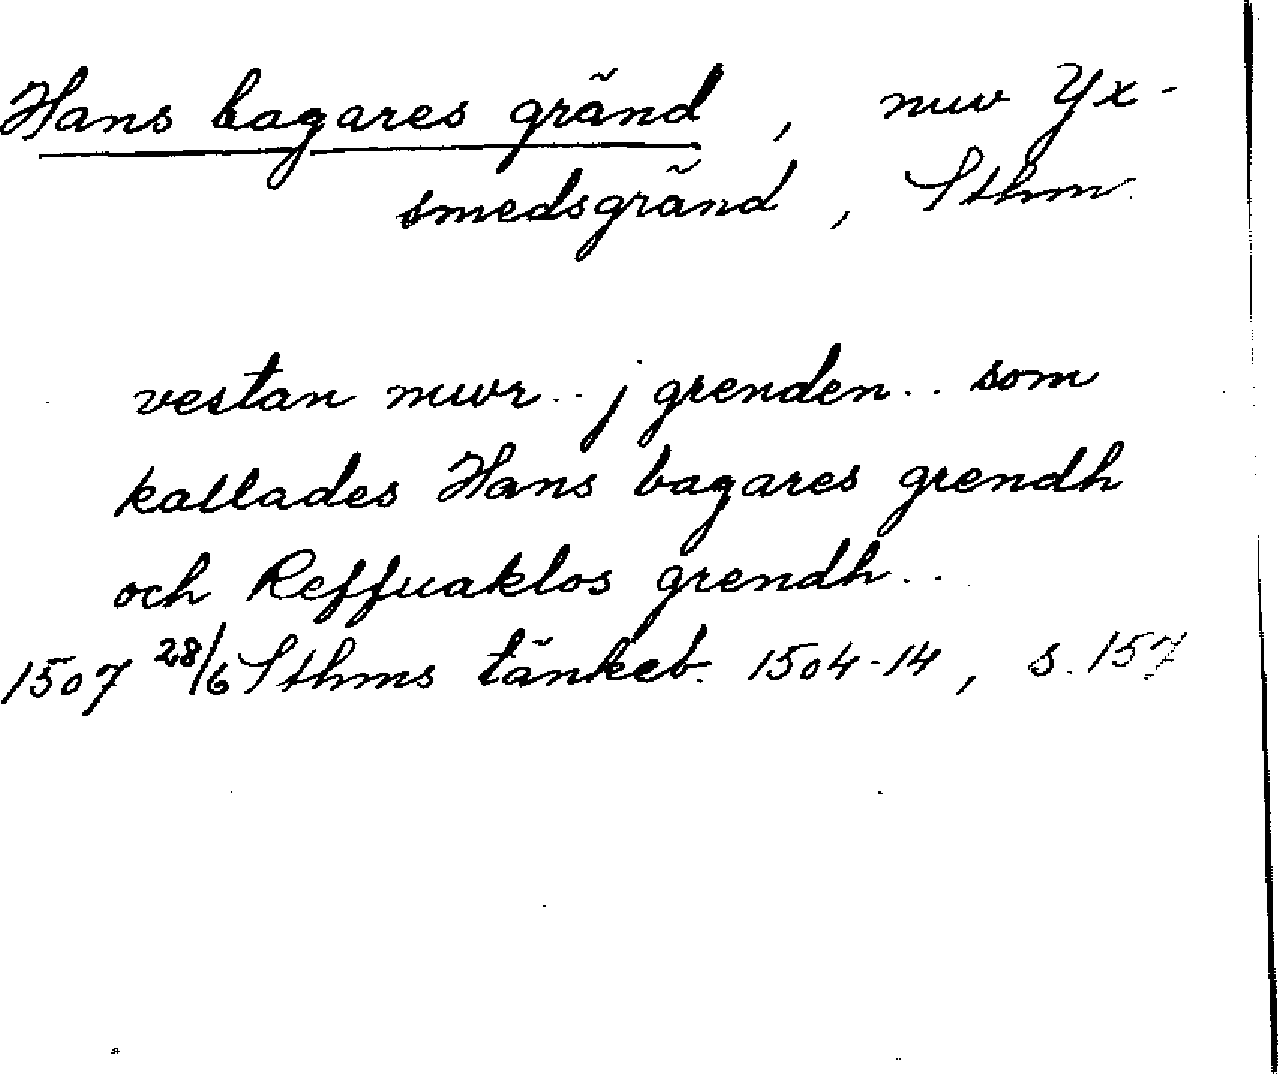 Hans bagares gränd, nuv Yx-
smedsgränd, Sthm.
vestan mwr.. j grenden.. som
kallades Hans bagares grendh
och Reffuaklos grendh..
1507 28/6 Sthms tänkeb. 1504-14, s. 157